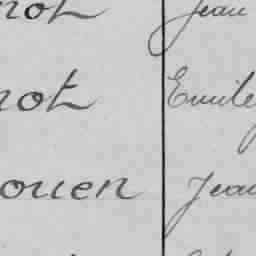 not Jean
not Emile
ouen Jean